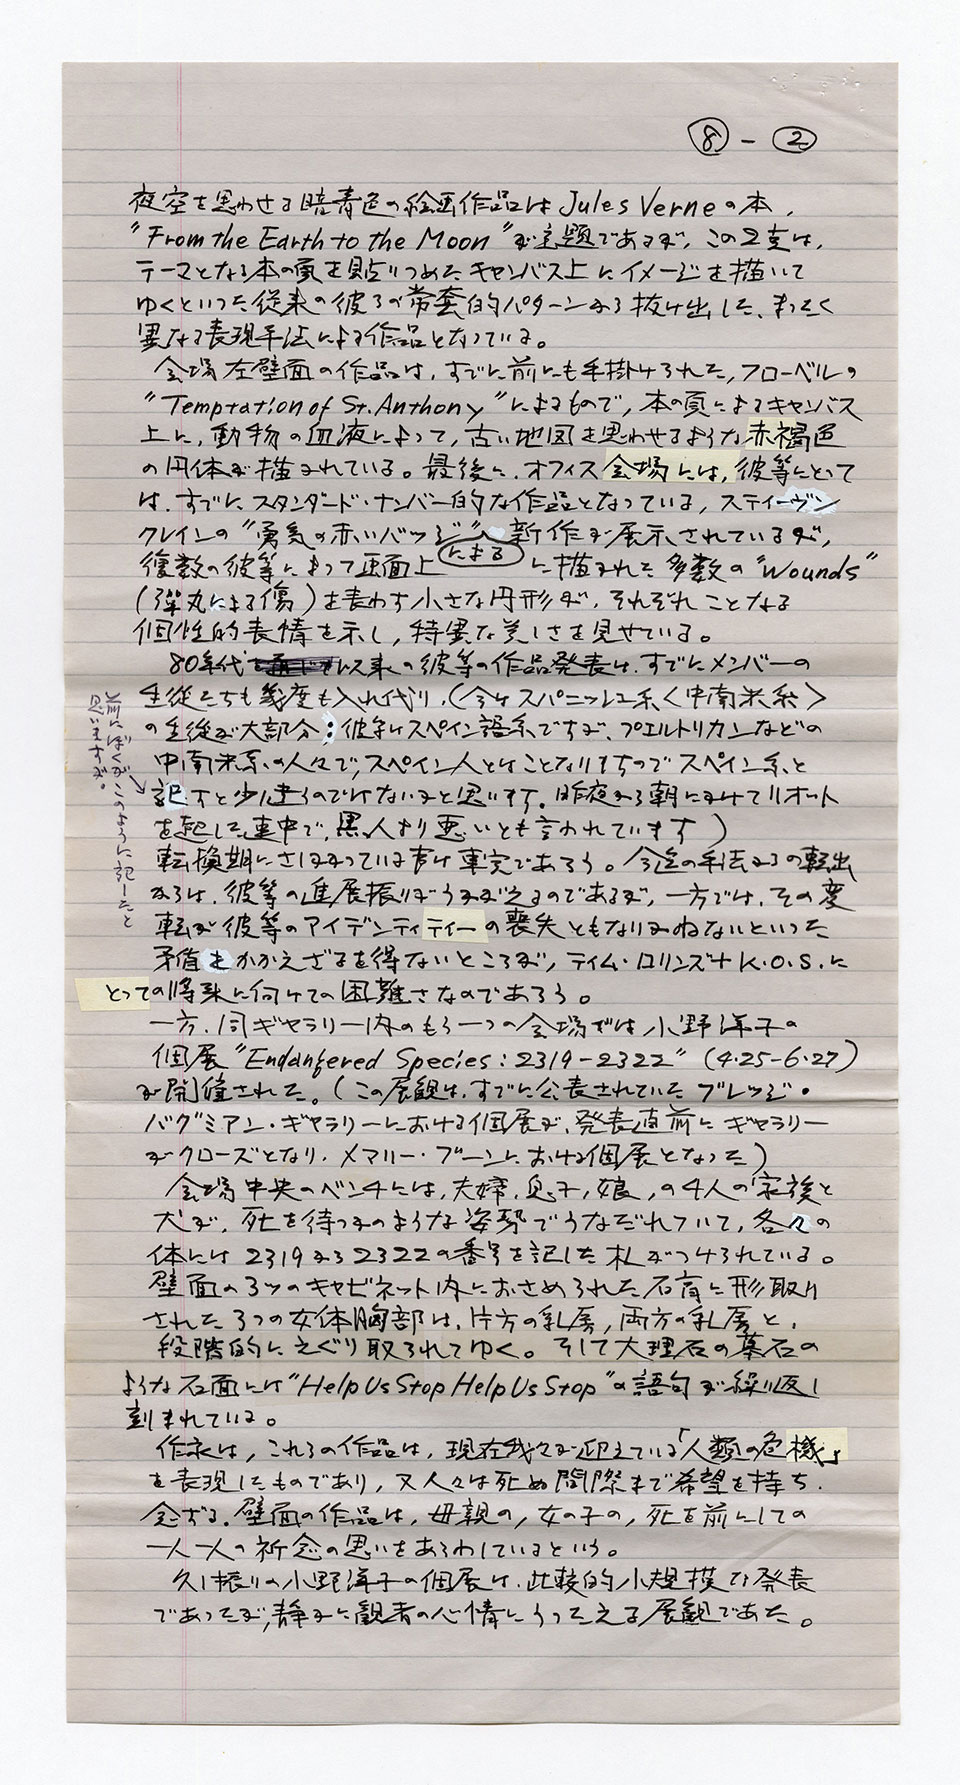 ⑧ - ②
夜空を思わせる暗青色の絵画作品は Jules Verne の本、
"From the Earth to the Moon" が主題であるが、この2点は、
テーマとなる本の頁を貼りつめたキャンバス上にイメージを描いて
ゆくといった従来の彼等の常套的パターンから抜け出した、まったく
異なる表現手法による作品となっている。
会場左壁面の作品は、すでに前にも手掛けられた、フローベルの
"Temptation of St. Anthony" によるもので、本の頁によるキャンバス
上に、動物の血液によって、古い地図を思わせるような赤褐色
の円体が描かれている。最後に、オフィス会場には、彼等にとって
は、すでにスタンダード・ナンバー的な作品となっている、スティーヴン
クレインの "勇気の赤いバッジ" による 新作が展示されているが、
復数の彼等によって画面上に描かれた多数の "Wounds"
(弾丸による傷)を表わす小さな円形が、それぞれことなる
個性的表情を示し、特異な美しさを見せている。
80年代以来の彼等の作品発表は、すでにメンバーの
生徒たちも幾度も入れ代り、(今はスパニッシュ系〈中南米系〉
の生徒が大部分:彼等はスペイン語系ですが、プエルトリカンなどの
中南米系の人々で、スペイン人とはことなりますのでスペイン系と
記すと少し違うのではないかと思います。昨夜から朝にかけてリオット
を起した連中で、黒人より悪いとも言われています)
前にぼくがこのように記したと
思いますが。
転換期にさしかかっている事は事実であろう。今迄の手法からの転出
からは、彼等の進展振りがうかがえるのであるが、一方では、その変
転が彼等のアイデンティティーの喪失ともなりかねないといった
矛盾をかかえざるを得ないところが、ティム・ロリンズ+K.O.S.に
とっての将来に向けての困難さなのであろう。
一方、同ギャラリー内のもう一つの会場では小野洋子の
個展 "Endanfered Species: 2319-2322" (4・25-6・27)
が開催された。(この展観は、すでに公表されていたブレッジ・
バグミアン・ギャラリーにおける個展が、発表直前にギャラリー
がクローズとなり、メアリー・ブーンにおける個展となった)
会場中央のベンチには、夫婦、息子、娘、の4人の家族と
犬が、死を待つかのような姿勢でうなだれていて、各々の
体には2319から2322の番号を記した札がつけられている。
壁面の3ツのキャビネット内におさめられた石膏に形取り
された3つの女体胸部は、片方の乳房、両方の乳房と、
段階的にえぐり取られてゆく。そして大理石の墓石の
ような石面には "Help Us Stop Help Us Stop" の語句が繰り返し
刻まれている。
作家は、これらの作品は、現在我々が迎えている「人類の危機」
を表現したものであり、又人々は死ぬ間際まで希望を持ち、
念ずる。壁面の作品は、母親の、女の子の、死を前にしての
一人一人の祈念の思いをあらわしているという。
久し振りの小野洋子の個展は、比較的小規模な発表
であったが、静かに観者の心情にうったえる展観であた。